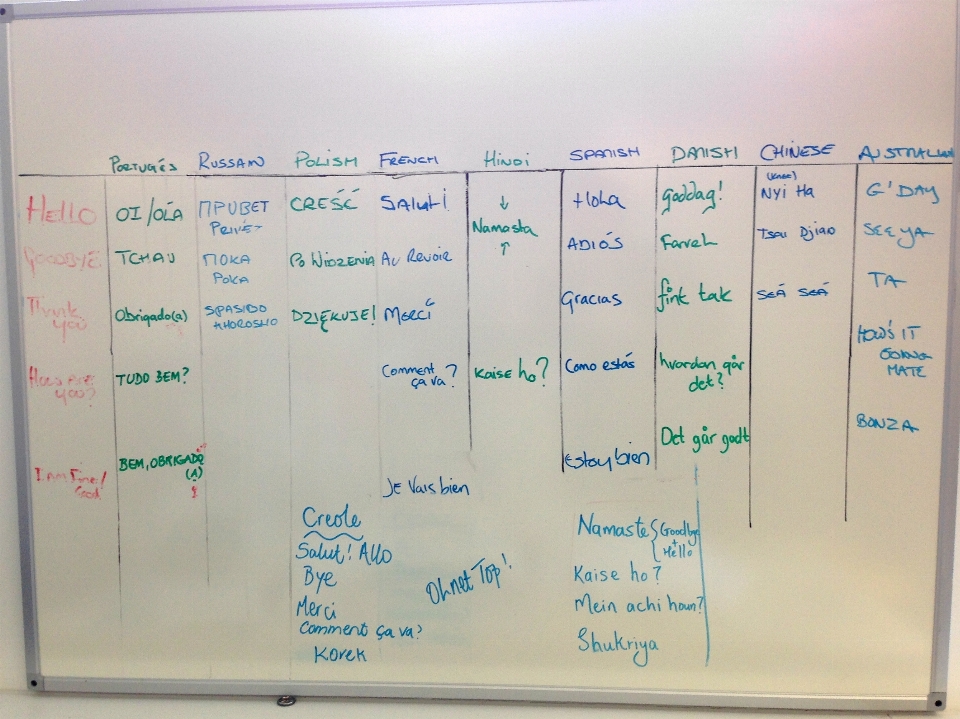 PORTUGÊS RUSSAIN POLISH FRENCH HINDI SPANISH DANISH CHINESE AUSTRALIAN
Hello OI/OLÁ ПРUВЕТ CREŚĆ SALUT! ↓ Hola goddag! NYI HA G'DAY
PRIVĖT
Namasta
↑
GOODBYE TCHAU ПОКА PO WIDZENIA AU REVOIR ADIÓS Farvel TSAU DJIAO SEE YA
POKA
Thank you Obrigado(a) SPASIDO DZIĘKUJE! MERCI Gracias fint tak SEÁ SEÁ TA
KHOROSHO
How are you? TUDO BEM? Comment ça va? Kaise ho? Como estás hvordan går det? HOW'S IT GOING MATE
I am Fine/ Good BEM, OBRIGADO (A) JE VAIS bien Estoy bien Det går godt BONZA
Creole
Salut! Allo
Bye
Merci
Comment ça va?
Korek
Oh net Top!
Namaste { Goodbye + Hello
Kaise ho?
Mein achi houn?
Shukriya